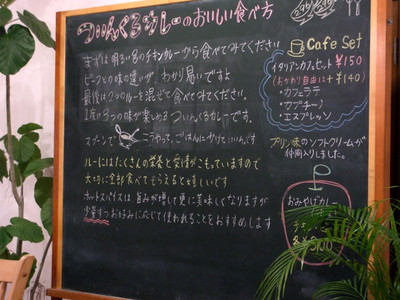 ついんぐるカレーのおいしい食べ方
まずは明るい色のチキンカレーから食べてみてください
ビーフとの味の違いが、わかり易いですよ
最後は2つのルーを混ぜて食べてみてください。
1度に3つの味が楽しめるついんぐるカレーです。
スプーンで こうやって、ごはんにかけていいんです
ルーにはたくさんの栄養と愛情がこもっていますので
大切に全部食べてもらえると嬉しいです
ホットスパイスは旨みが増して更に美味しくなりますが
少量ずつお好みに応じて使われることをおすすめします
Cafe Set
イタリアンカフェセット ¥150
(おかわり自由は+¥140)
・カフェラテ
・カプチーノ
・エスプレッソ
プリン味のソフトクリームが
仲間入りしました。
おみやげカレー